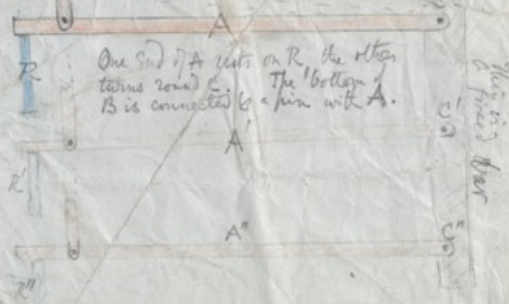 A
R
One End of A rests on R the other
turns round C. The bottom of
B is connected by a pin with A.
This is
a fixed bar
A'
C'
R'
A"
C"
R"